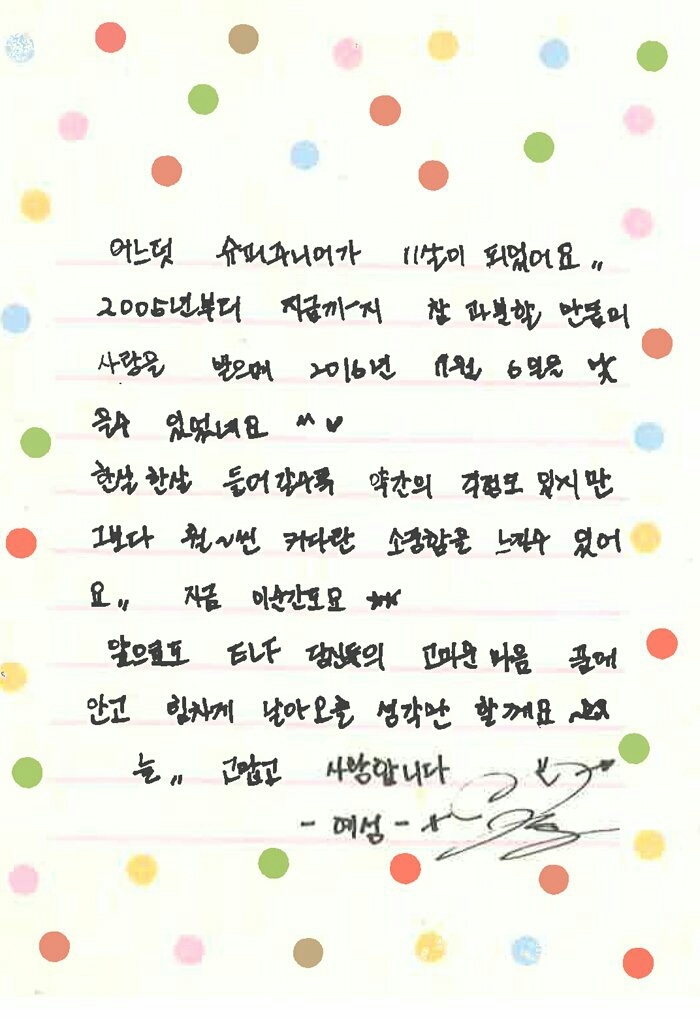 어느덧 슈퍼주니어가 11살이 되었어요,,
2005년부터 지금까지 참 과분할 만큼의
사랑을 받으며 2016년 11월 6일을 맞
을수 있었네요 ^^ ♥
한살 한살 들어갈수록 약간의 걱정도 있지만
그보다 훨~씬 커다란 소중함을 느낄수 있어
요,, 지금 이순간도요 **
앞으로도 ELF 당신들의 고마운 마음 품에
안고 힘차게 날아오를 생각만 할께요
늘,, 고맙고 사랑합니다
- 예성 -